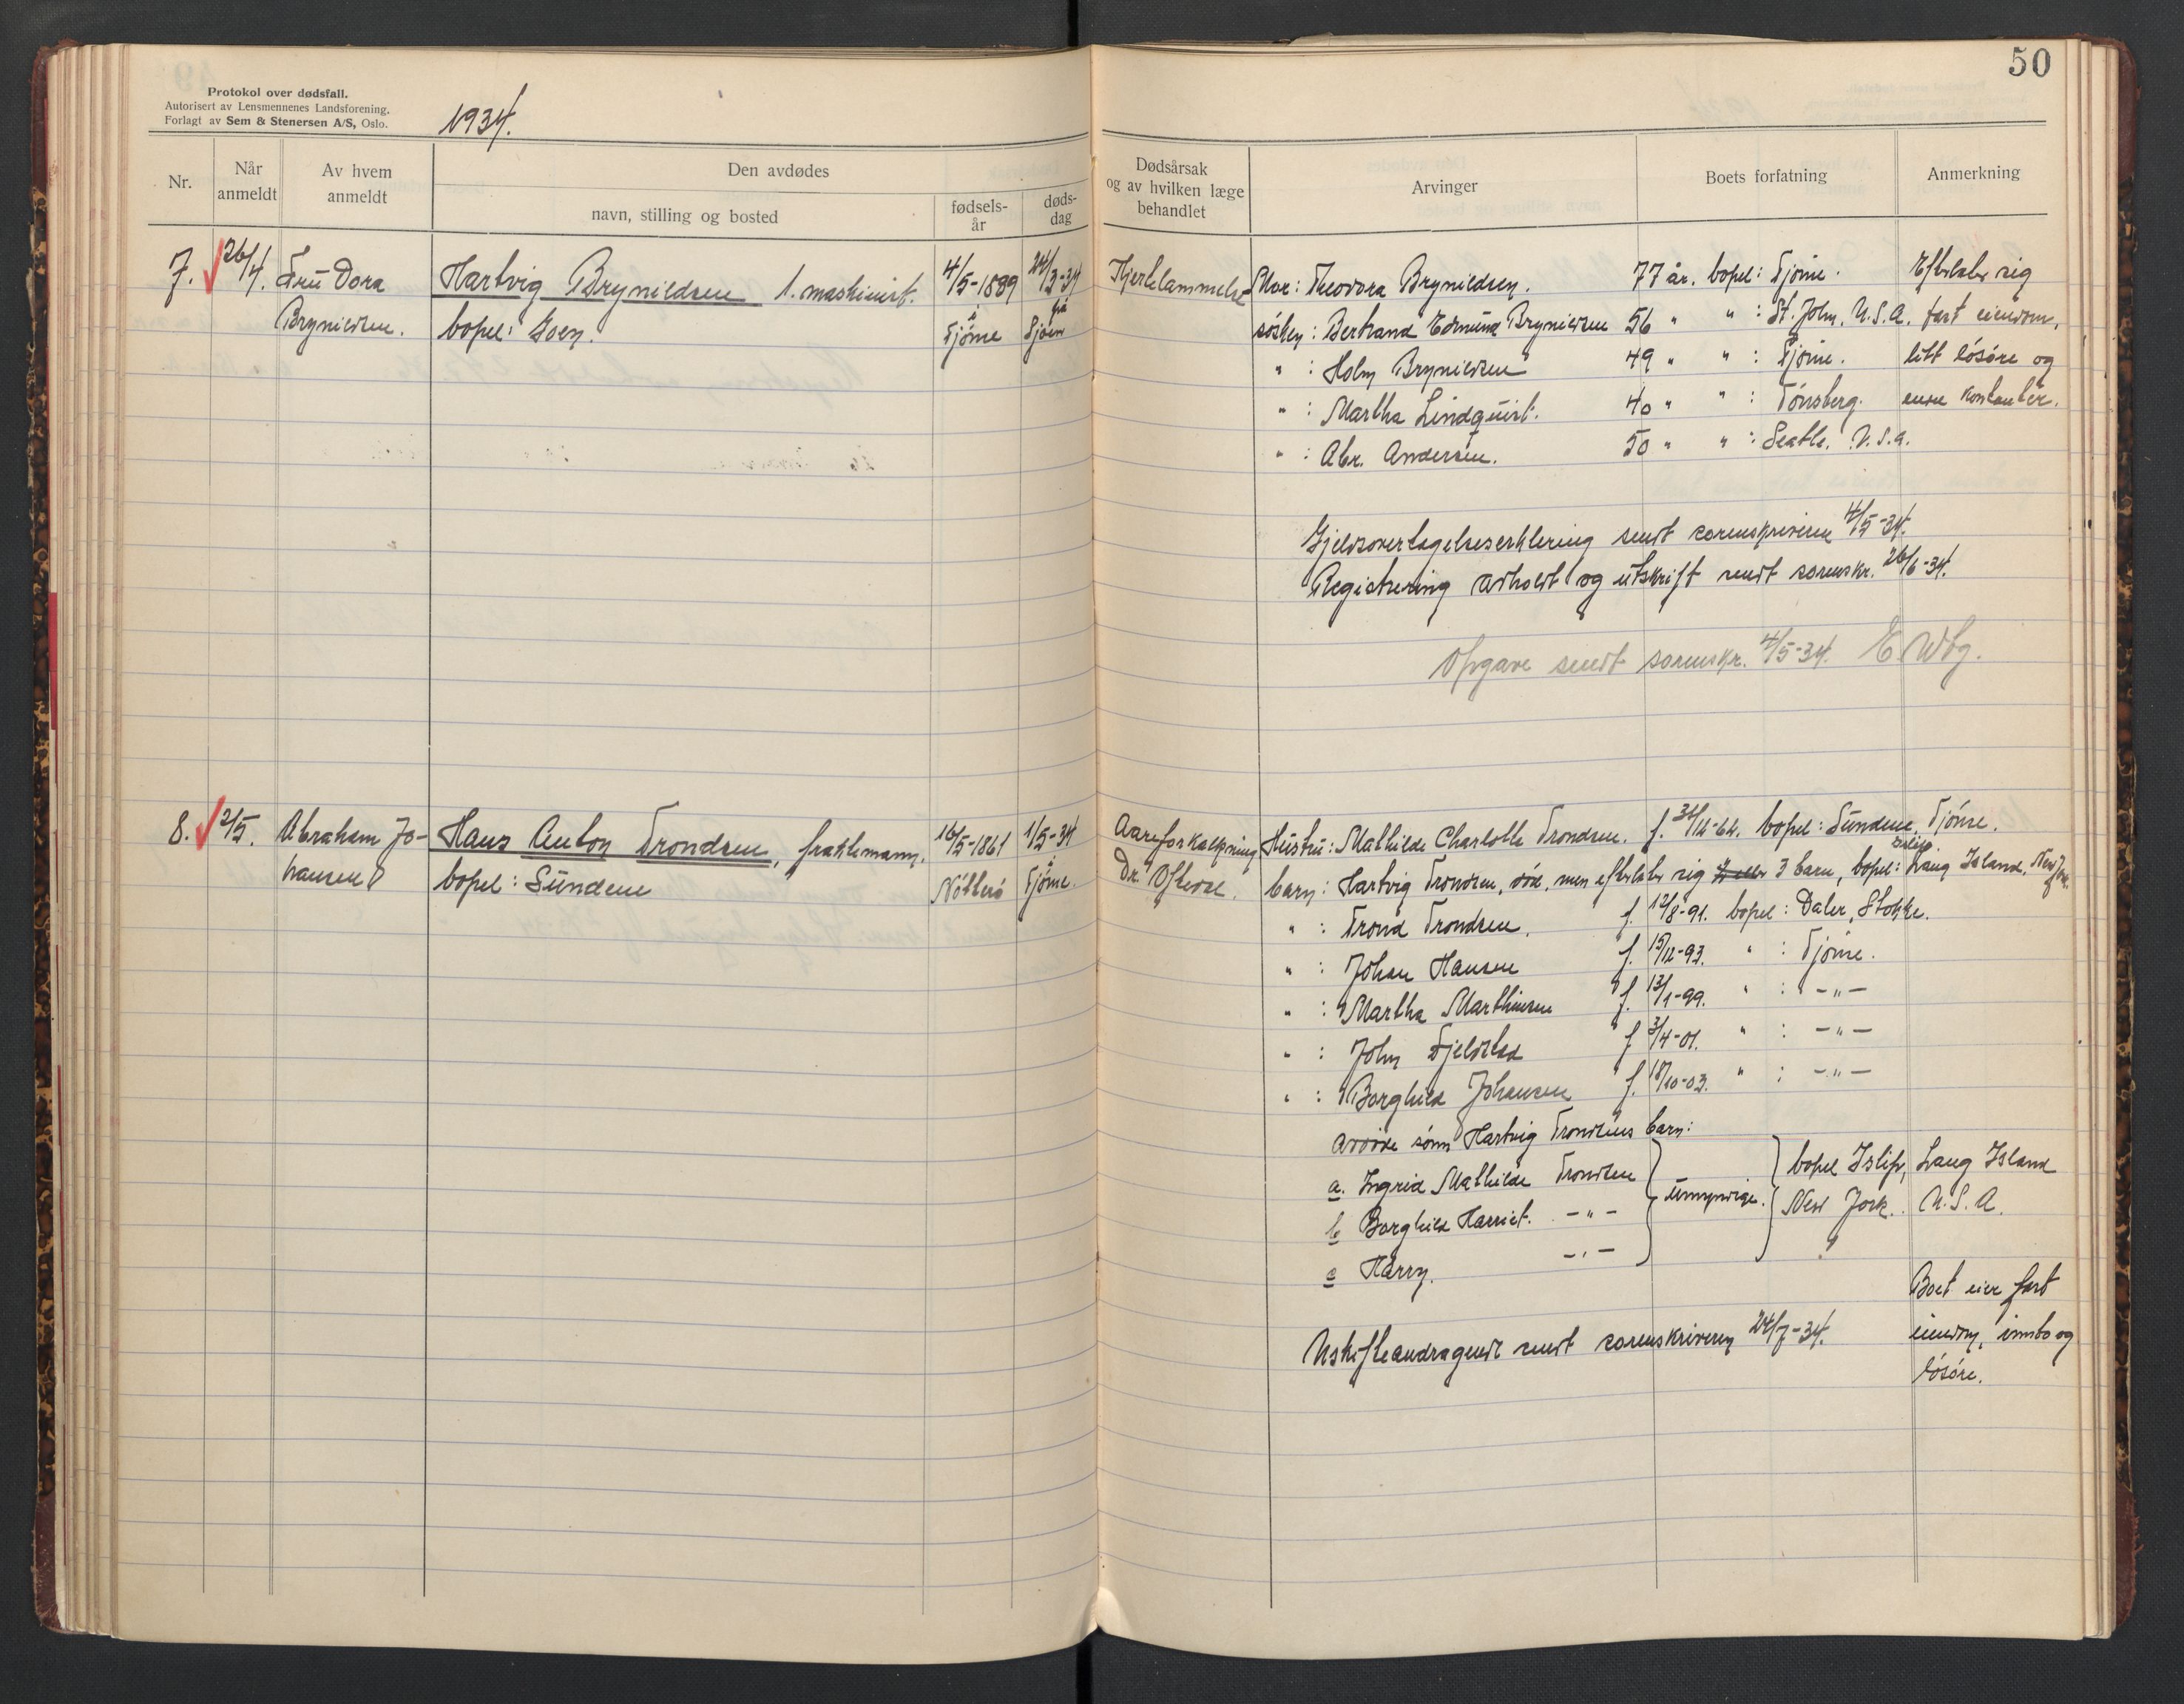 50
Protokol over dødsfall.
Autorisert av Lensmennenes Landsforening.
Forlagt av Sem & Stenersen A/S, Oslo.
1934.
Nr.
Når anmeldt
Av hvem anmeldt
Den avdødes
navn, stilling og bosted
fødsels-år
døds-dag
Dødsårsak og av hvilken læge behandlet
Arvinger
Boets forfatning
Anmerkning
7. 26/4. Fru Dora Hartvig Brynildsen 1. maskinist. 4/5-1889 24/3-34
Brynildsen. bopel: Goen. i Tjøme på Sjøen
Hjertelammelse Mor: Theodora Brynildsen. 77 år. bopel: Tjøme. Efterlater sig
søsken: Bertrand Edmund Brynildsen 56 " " : St. John, U.S.A. fast eiendom,
" : Holm Brynildsen 49 " " : Tjøme. litt løsøre og
" : Martha Lindquist. 40 " " : Tønsberg. endel kontanter.
" : Abr. Andersen. 50 " " : Seatle. U.S.A.
Gjeldsovertagelseserklering sendt sorenskriveren 4/5-34.
Registrering avholdt og utskrift sendt sorenskr. 26/6-34.
Opgave sendt sorenskr. 4/5-34. E. Wbg.
8. 2/5. Abraham Jo- Hans Anton Trondsen, fraktemann. 16/5-1861 1/5-34
hansen bopel: Sundene Nøtterø i Tjøme.
Aareforkalkning Hustru: Mathilde Charlotte Trondsen. f. 31/12-64. bopel: Sundene, Tjøme.
Islip
Dr. Oftedal. barn: Hartvig Trondsen, død, men efterlater sig 3 barn, bopel: Lang Island, New York.
" : Trond Trondsen. f. 12/8-91. bopel: Daler, Stokke.
" : Johan Hansen f. 15/12-93. " : Tjøme.
" : Martha Marthinsen f. 13/1-99. " : -"-
" : John Fjeldstad f 3/4-01. " : -"-
" : Borghild Johansen f. 18/10-03. " : -"-
Avdøde sønn Hartvig Trondsens barn:
a. Ingrid Mathilde Trondsen } umyndige. } bopel Islip, Lang Island
b Borghild Harriet. -"- New Jork. U.S.A.
c Harry. -"-
Boet eier fast
Uskifteandragende sendt sorenskriveren 24/7-34. eiendom, innbo og
løsøre.